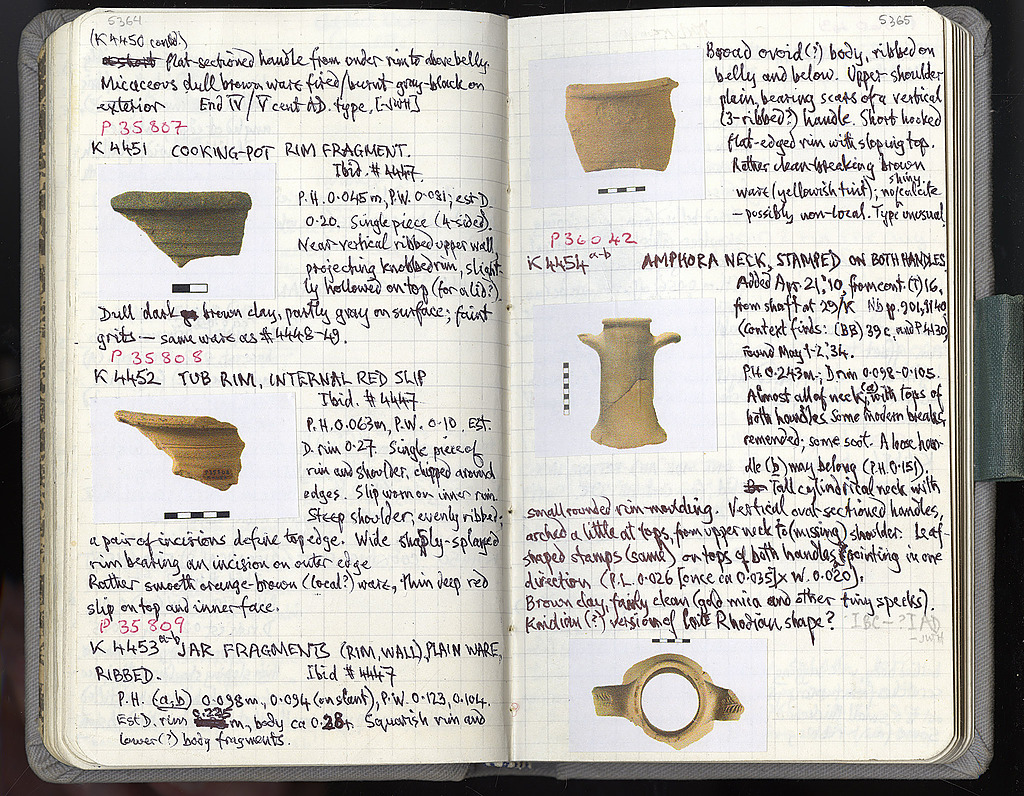 5364
(K 4450 contd.)
flat-sectioned handle from under rim to above belly.
Micaceous dull brown ware fired/burnt gray-black on
exterior End IV/V cent AD. type,
P 35807
K 4451 COOKING-POT RIM FRAGMENT.
Ibid. #4447.
P.H. 0.045m, P.W. 0.081; est D.
0.20. Single piece (4-sided).
Near-vertical ribbed upper wall,
projecting knobbed rim, slight-
ly hollowed on top (for a lid?).
Dull dark brown clay, partly gray on surface; faint
grits — same ware as #4448-49.
P 35808
K 4452 TUB RIM, INTERNAL RED SLIP
Ibid. #4447
P.H. 0.063m, P.W. 0.10. Est.
D. rim 0.27. Single piece of
rim and shoulder, chipped around
edges. Slip worn on inner rim.
Steep shoulder, evenly ribbed;
a pair of incisions define top edge. Wide sharply-splayed
rim bearing an incision on outer edge
Rather smooth orange-brown (local?) ware, thin deep red
slip on top and inner face.
P 35809
K 4453 a-b JAR FRAGMENTS (RIM, WALL), PLAIN WARE,
RIBBED. Ibid #4447
P.H. (a,b) 0.098m, 0.094 (on slant), P.W. 0.123, 0.104.
Est D. rim 0.225 m, body ca 0.28+. Squarish rim and
lower(?) body fragments.
5365
Broad ovoid(?) body, ribbed on
belly and below. Upper shoulder
plain, bearing scars of a vertical
(3-ribbed?) handle. Short necked
flat-edged rim with sloping top.
Rather clean-breaking brown
ware (yellowish tint); no/shiny calcite
— possibly non-local. Type unusual.
P36042
K 4454 a-b AMPHORA NECK, STAMPED ON BOTH HANDLES
Added Apr. 21, '10, from cont. (T) 16,
from shaft at 29/K Nb p. 901, 3140
(context finds: (BB) 39c, and P4130)
found May 1-2, '34.
P.H. 0.243m.; D. rim 0.098-0.105.
Almost all of neck (a) with tops of
both handles. Some modern breaks,
remended; some soot. A loose han-
dle (b) may belong (P.H. 0.151).
Tall cylindrical neck with
small rounded rim-moulding. Vertical oval-sectioned handles,
arched a little at tops, from upper neck to (missing) shoulder. Leaf-
shaped stamps (same) on tops of both handles, pointing in one
direction (P.L. 0.026 [once ca 0.035] x W. 0.020).
Brown clay, fairly clean (gold mica and other tiny specks).
Knidian (?) version of late Rhodian shape?